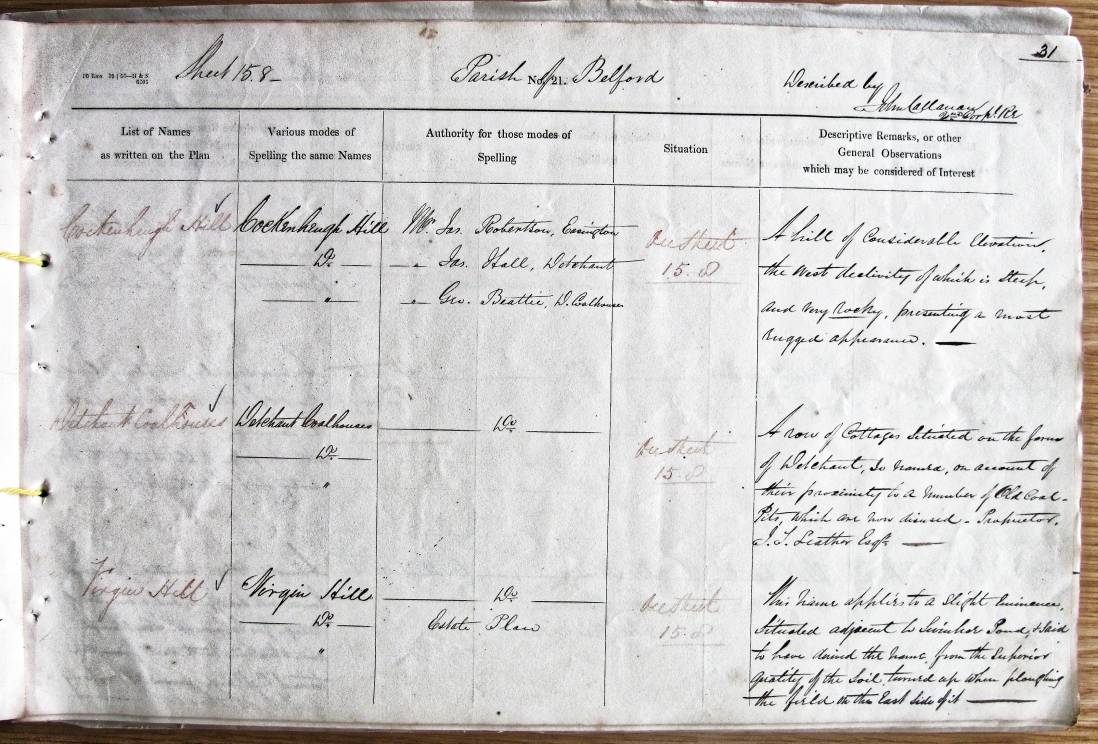 31
Sheet 15.8
Parish of Belford
No. 21.
Described by
John Callanan
2nd Corpl. RE
List of Names
as written on the Plan
Various modes of
Spelling the same Names
Authority for those modes of
Spelling
Situation
Descriptive Remarks, or other
General Observations
which may be considered of Interest
Cockenheugh Hill
Cockenheugh Hill
Do.
"
Mr. Jas. Robertson, Easington
" Jas. Hall, Detchant
" Geo. Beattie, D. Coalhouses
On Sheet
15.8
A hill of Considerable elevation,
the West declivity of which is steep,
and very rocky, presenting a most
rugged appearance.
Detchant Coalhouses
Detchant Coalhouses
Do.
"
Do.
On Sheet
15.8
A row of Cottages Situated on the farm
of Detchant, So named, on account of
their proximity to a number of Old Coal-
Pits, which are now disused - Proprietor,
J. T. Leather Esqr.
Virgin Hill
Virgin Hill
Do.
"
Do.
Estate Plan
On Sheet
15.8
This name applies to a Slight Eminence,
Situated adjacent to Swinhoe Pond, & Said
to have derived the name from the superior
quality of the soil turned up when ploughing
the field on the East side of it